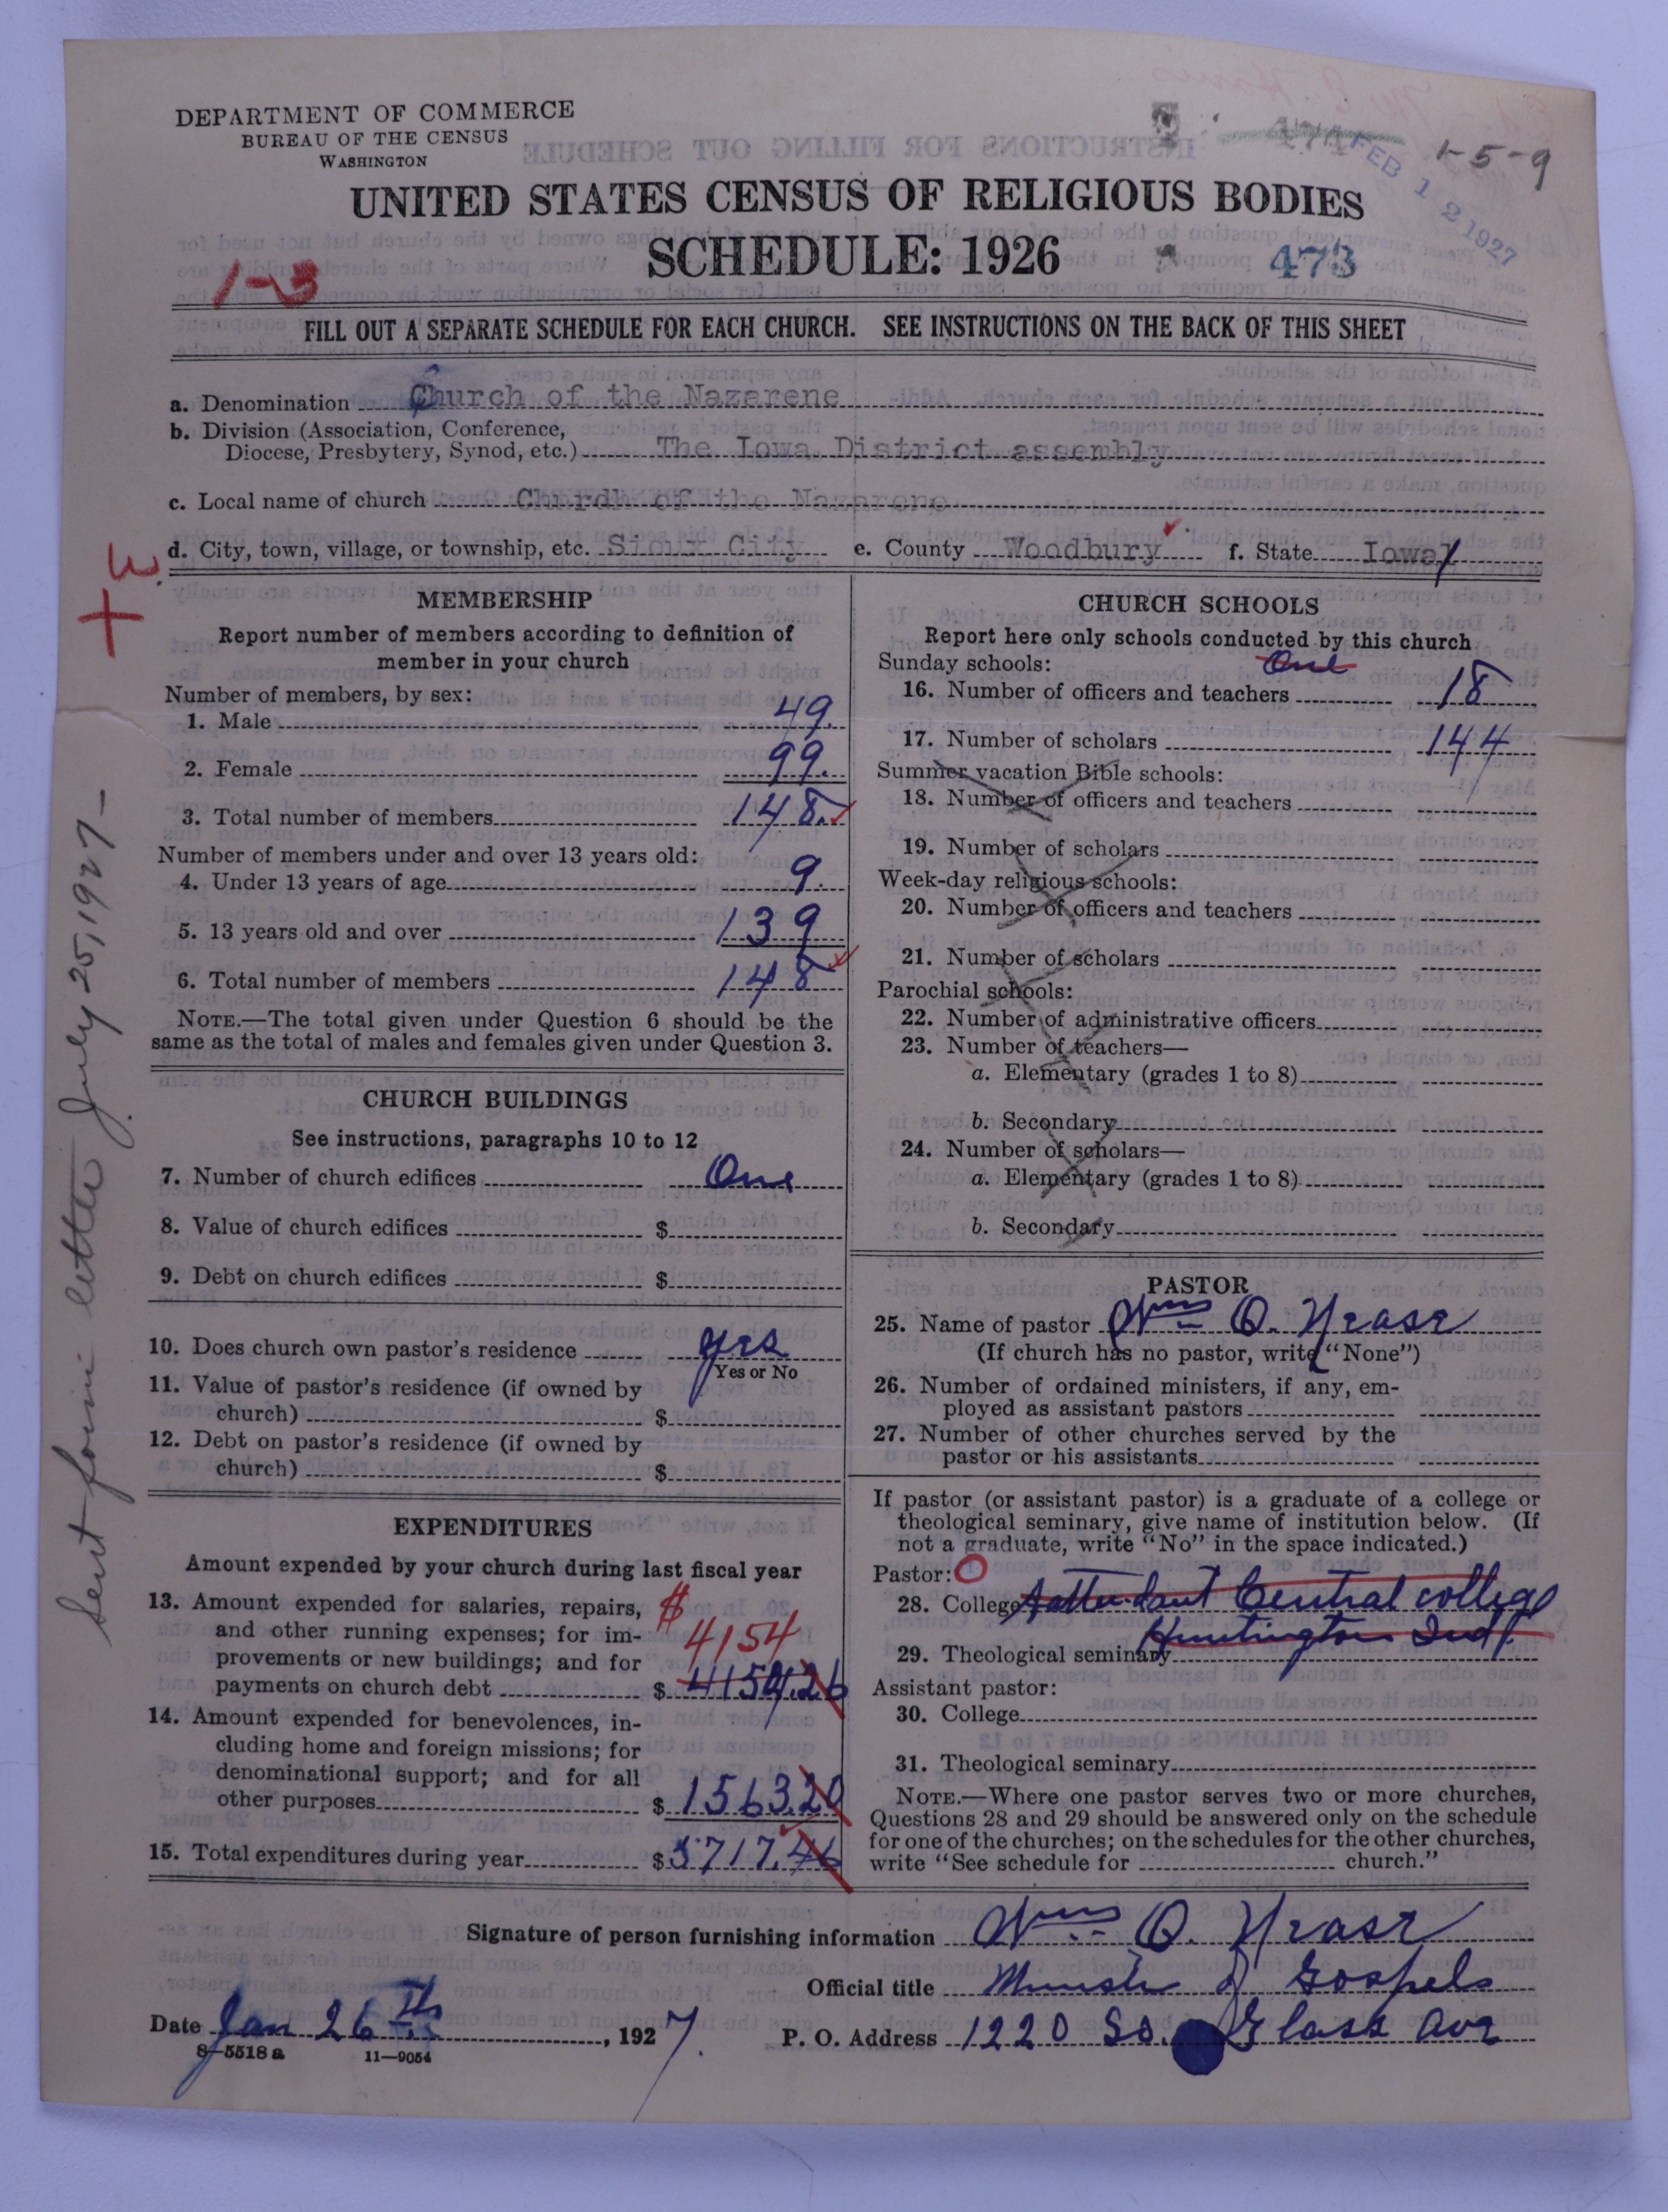 DEPARTMENT OF COMMERCE
BUREAU OF THE CENSUS
WASHINGTON
FEB 12 1927
1-5-9
UNITED STATES CENSUS OF RELIGIOUS BODIES
SCHEDULE: 1926
473
1-3
FILL OUT A SEPARATE SCHEDULE FOR EACH CHURCH. SEE INSTRUCTIONS ON THE BACK OF THIS SHEET
a. Denomination Church of the Nazarene
b. Division (Association, Conference,
Diocese, Presbytery, Synod, etc.) The Iowa District assembly
c. Local name of church Churdh of the Nazarene
d. City, town, village, or township, etc. Sioux City e. County Woodbury f. State Iowa
Sent form letter July 25, 1927-
MEMBERSHIP
Report number of members according to definition of
member in your church
Number of members, by sex:
1. Male 49.
2. Female 99.
3. Total number of members 148.
Number of members under and over 13 years old:
4. Under 13 years of age 9.
5. 13 years old and over 139
6. Total number of members 148
NOTE.—The total given under Question 6 should be the
same as the total of males and females given under Question 3.
CHURCH BUILDINGS
See instructions, paragraphs 10 to 12
7. Number of church edifices One
8. Value of church edifices $
9. Debt on church edifices $
10. Does church own pastor's residence yes
Yes or No
11. Value of pastor's residence (if owned by
church) $
12. Debt on pastor's residence (if owned by
church) $
EXPENDITURES
Amount expended by your church during last fiscal year
13. Amount expended for salaries, repairs, $
and other running expenses; for im- 4154
provements or new buildings; and for
payments on church debt $ 4154.26
14. Amount expended for benevolences, in-
cluding home and foreign missions; for
denominational support; and for all
other purposes $ 1563.20
15. Total expenditures during year $ 5717.46
CHURCH SCHOOLS
Report here only schools conducted by this church
Sunday schools: One
16. Number of officers and teachers 18
17. Number of scholars 144
Summer vacation Bible schools:
18. Number of officers and teachers
19. Number of scholars
Week-day religious schools:
20. Number of officers and teachers
21. Number of scholars
Parochial schools:
22. Number of administrative officers
23. Number of teachers—
a. Elementary (grades 1 to 8)
b. Secondary
24. Number of scholars—
a. Elementary (grades 1 to 8)
b. Secondary
PASTOR
25. Name of pastor Wm O. Nease
(If church has no pastor, write "None")
26. Number of ordained ministers, if any, em-
ployed as assistant pastors
27. Number of other churches served by the
pastor or his assistants
If pastor (or assistant pastor) is a graduate of a college or
theological seminary, give name of institution below. (If
not a graduate, write "No" in the space indicated.)
Pastor:
28. College Attendant Central college
Huntington Ind.
29. Theological seminary
Assistant pastor:
30. College
31. Theological seminary
NOTE.—Where one pastor serves two or more churches,
Questions 28 and 29 should be answered only on the schedule
for one of the churches; on the schedules for the other churches,
write "See schedule for church."
Signature of person furnishing information Wm O. Nease
Official title of Gospels
Date Jan 26th, 1927. P. O. Address 1220 So. Glass Ave
8-5518 a 11-9054